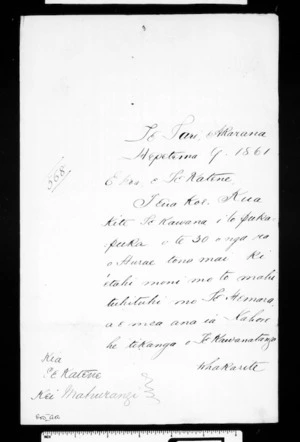 Te Tari, Akarana
Hepetema 4. 1861
568
E hoa, e Te Katene,
Tena koe. Kua
kite Te Kawana i to puka
puka o te 30 o nga ra
o Hurae tono mai ki
etahi moni mo to mahi
tuhituhi mo Te Hemara,
a e mea ana ia
he tikanga o Te Kawanatanga
whakarite
Kia
Te Katene
Kei Mahurangi